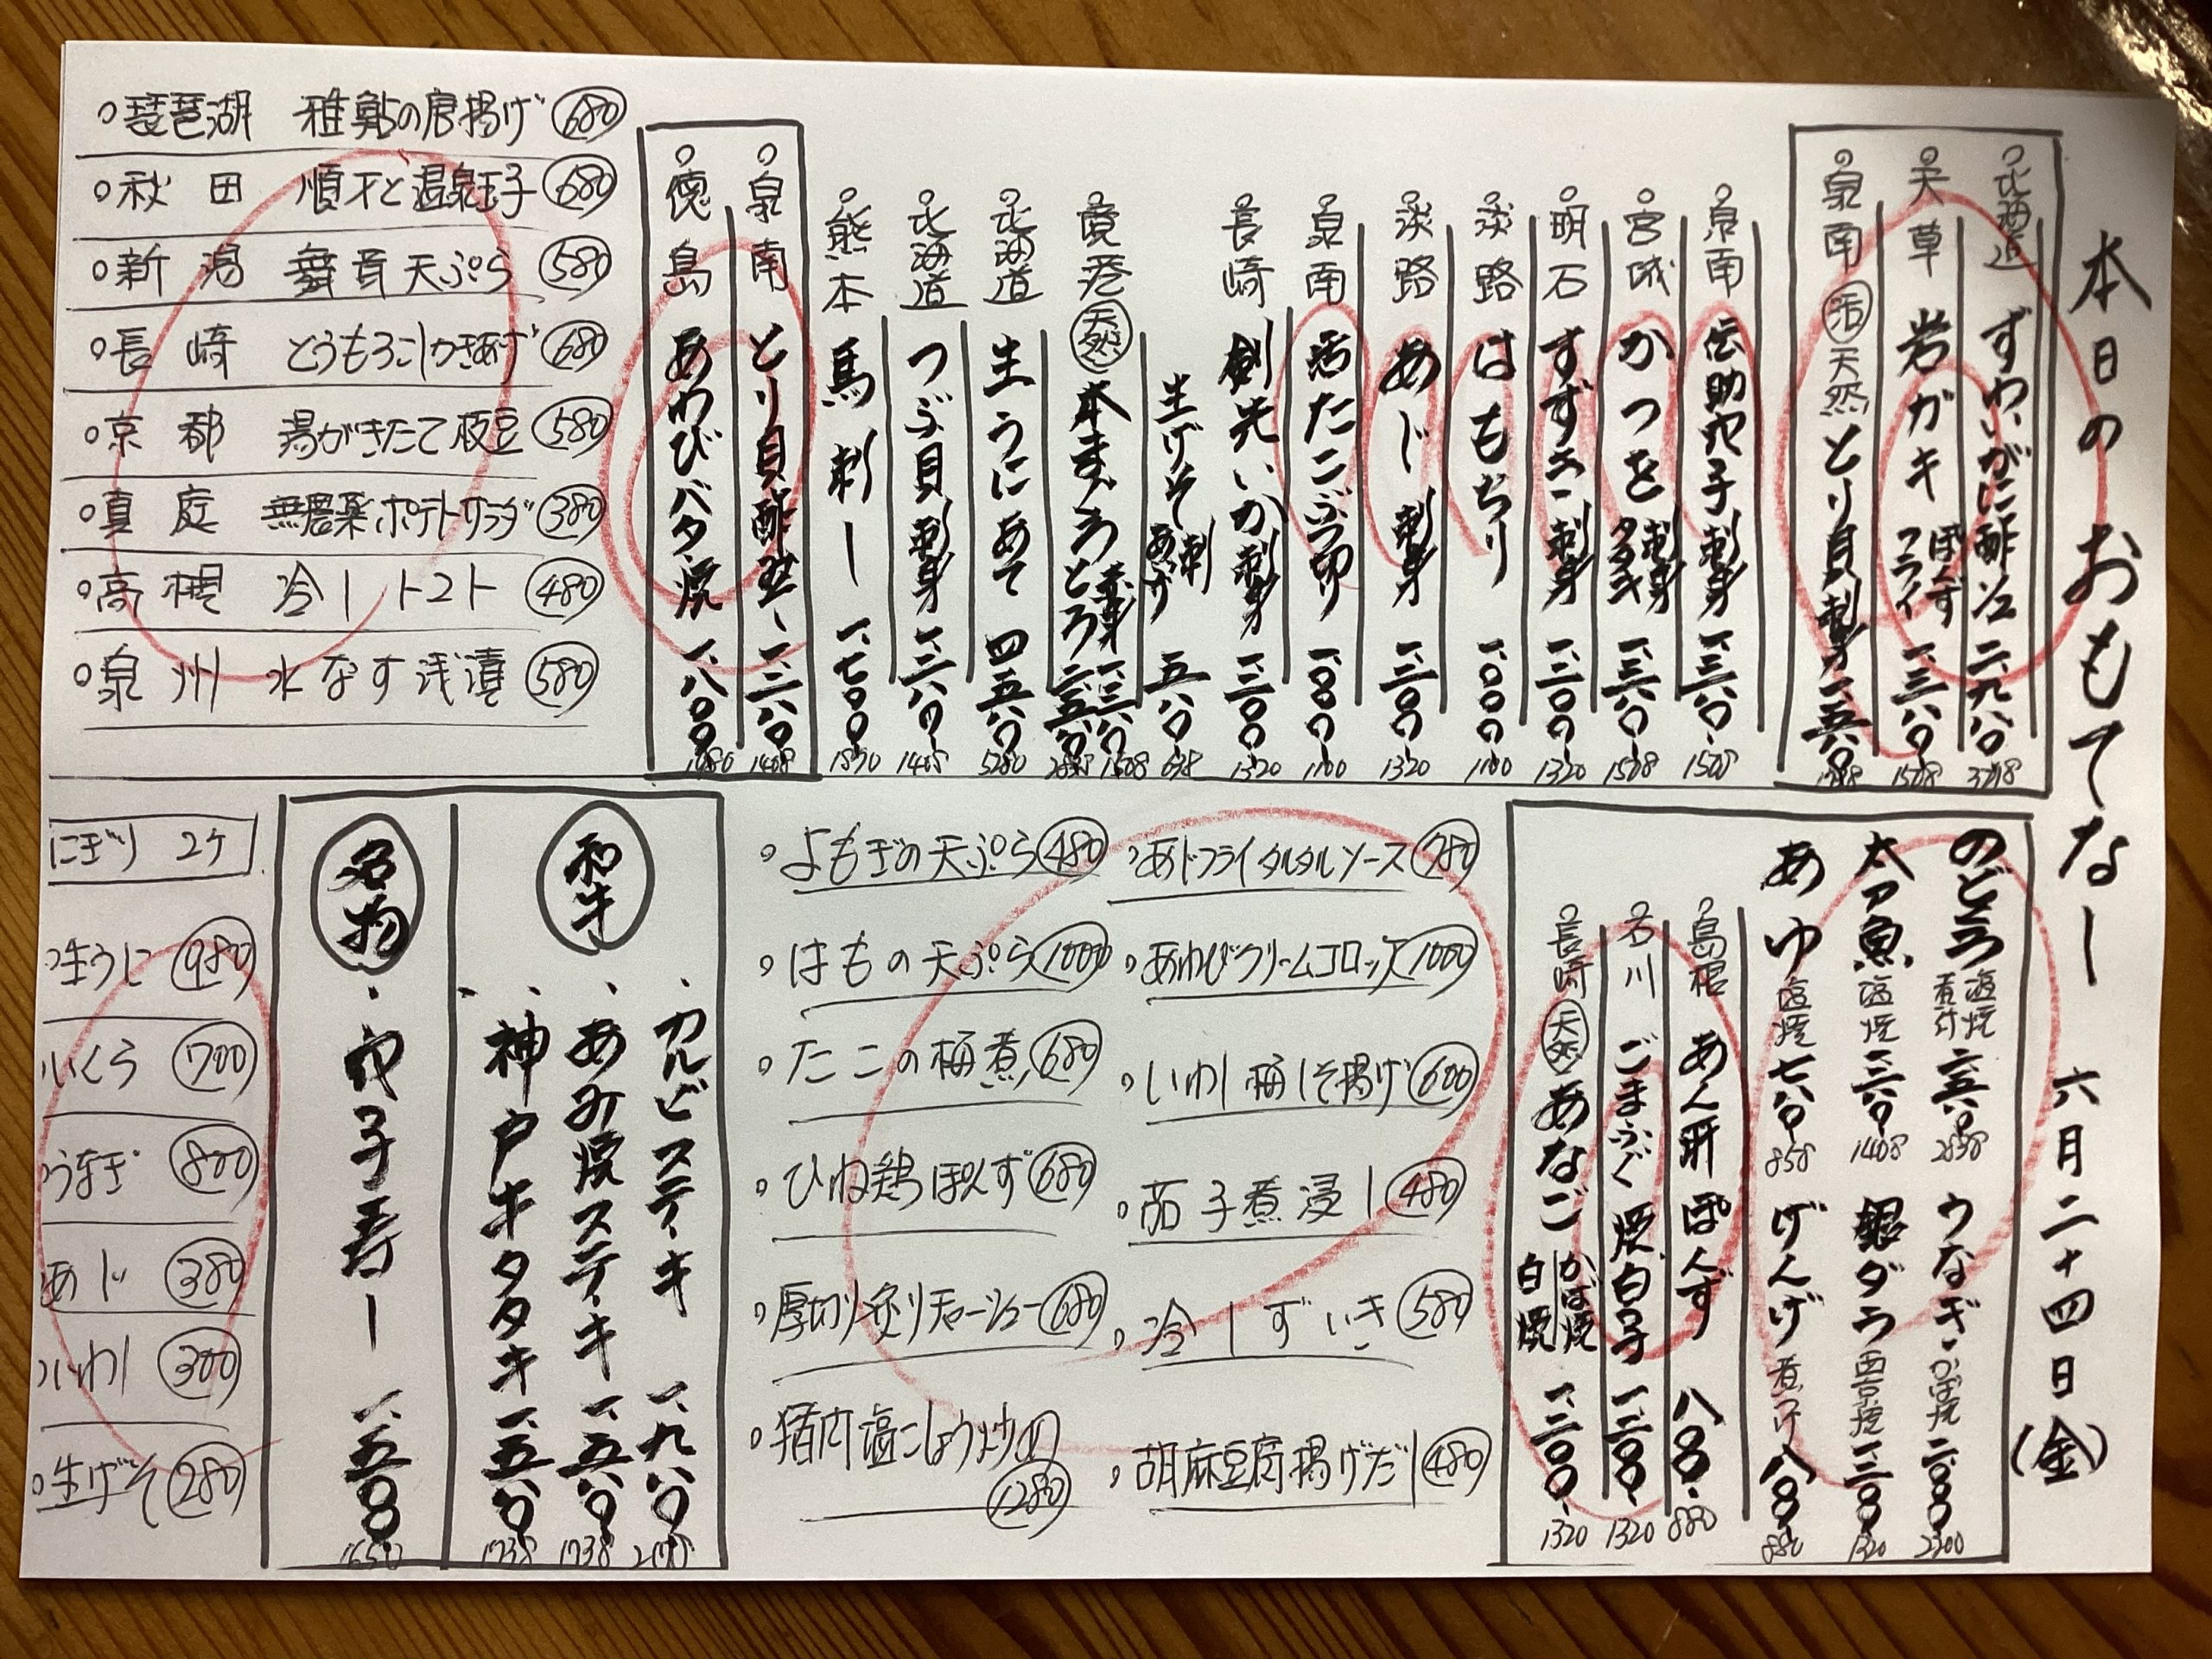 本日のおもてなし 六月二十四日(金)
北海道 ずわいがに酢 二、九八〇 
天草 岩ガキ ぽんず フライ 一、三八〇 1508
泉南 活 天然 とり貝刺身 一、五八〇
泉南 伝助穴子刺身 一、三八〇 1508
宮城 かつを 刺身 タタキ 一、三八〇 1508
明石 すずき刺身 一、二〇〇 1320
淡路 はもちり 一、〇〇〇 1100
淡路 あじ刺身 一、二〇〇 1320
泉南 活たこぶつ切り 一、〇〇〇 1100
長崎 剣先いか刺身 一、二〇〇 1320
生げそ 刺 あげ 五八〇 638
境港 天然 本まぐろ 赤身 一、三八〇 1508 とろ 二、五八〇 2838
北海道 生うにあて 四、八〇〇 5280
北海道 つぶ貝刺身 一、二八〇 1408
熊本 馬刺し 一、七〇〇 1870
泉南 とり貝酢 一、二八〇 1408
徳島 あわびバター焼 一、八〇〇 1980
琵琶湖 稚鮎の唐揚げ 680
秋田 順才と温泉玉子 680
新潟 舞茸天ぷら 580
長崎 とうもろこしかきあげ 680
京都 湯がきたて枝豆 580
真庭 無農薬ポテトサラダ 380
高槻 冷しトマト 480
泉州 水なす浅漬 580
のどぐろ 塩焼 煮付 二、五八〇 2838 うなぎ かば焼 二、〇〇〇 2200
太刀魚 塩焼 一、二八〇 1408 銀ダラ 西京焼 一、二〇〇 1320
あゆ 塩焼 七八〇 858 げんげ 煮つけ 八〇〇 880
島根 あん肝ぽんず 八〇〇 880
石川 ごまふぐ 漬白子 一、二〇〇 1320
長崎 天然 あなご かば焼 白焼 一、二〇〇 1320
あじフライタルタルソース 780
あわびクリームコロッケ 1000
いわし梅しそ揚げ 600
茄子煮浸し 480
冷しずいき 580
胡麻豆腐揚げだし 480
よもぎの天ぷら 480
はもの天ぷら 1000
たこの梅煮 680
ひね鶏ぽんず 680
厚切り炙りチャーシュー 680
猪肉塩こしょう炒め 1280
和牛
カルビステーキ 一、九八〇 2178
あみ焼ステーキ 一、五八〇 1738
神戸牛タタキ 一、五八〇 1738
名物
穴子寿し 一、五〇〇 1650
にぎり 2ケ
生うに 980
いくら 700
うなぎ 800
あじ 380
いわし 300
生げそ 280